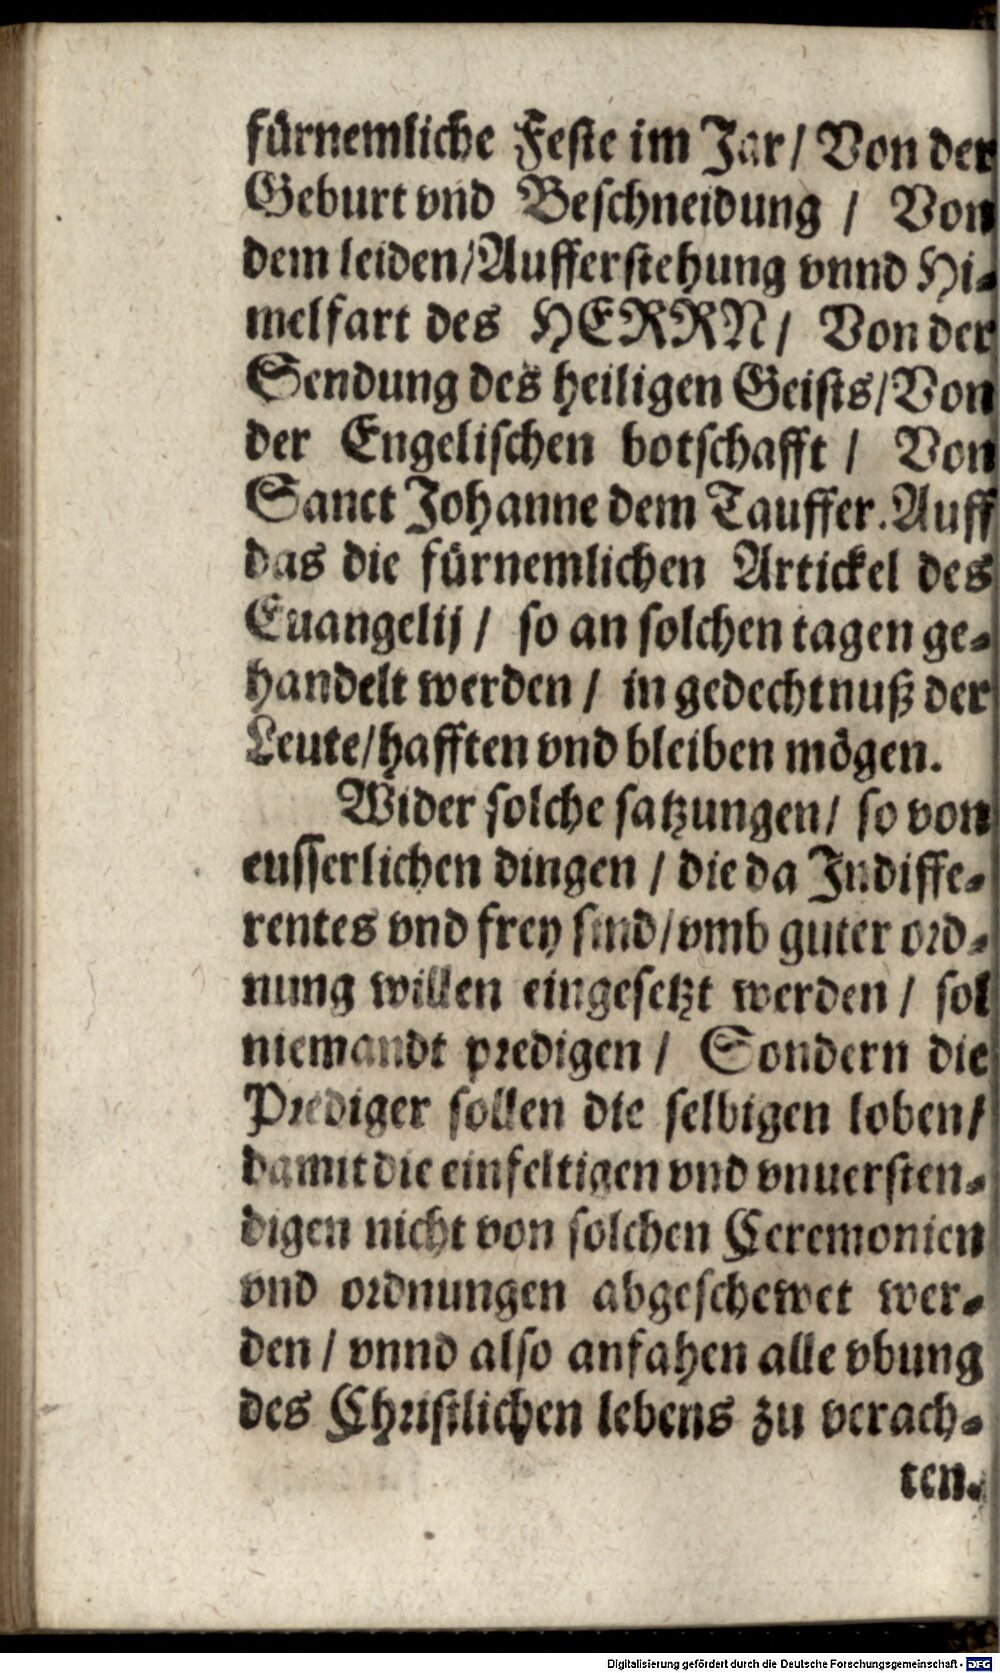 fürnemliche Feste im Jar / Von der
Geburt vnd Beschneidung / Von
dem leiden / Aufferstehung vnnd Hi-
melfart des HERRN / Von der
Sendung des heiligen Geists / Von
der Engelischen botschafft / Von
Sanct Johanne dem Tauffer. Auff
das die fürnemlichen Artickel des
Euangelij / so an solchen tagen ge-
handelt werden / in gedechtnuß der
Leute / hafften vnd bleiben mögen.
Wider solche satzungen / so von
eusserlichen dingen / die da Indiffe-
rentes vnd frey sind / vmb guter ord-
nung willen eingesetzt werden / sol
niemandt predigen / Sondern die
Prediger sollen die selbigen loben /
damit die einfeltigen vnd vnuersten-
digen nicht von solchen Ceremonien
vnd ordnungen abgeschewet wer-
den / vnnd also anfahen alle vbung
des Christlichen lebens zu verach-
ten.
Digitalisierung gefördert durch die Deutsche Forschungsgemeinschaft - DFG